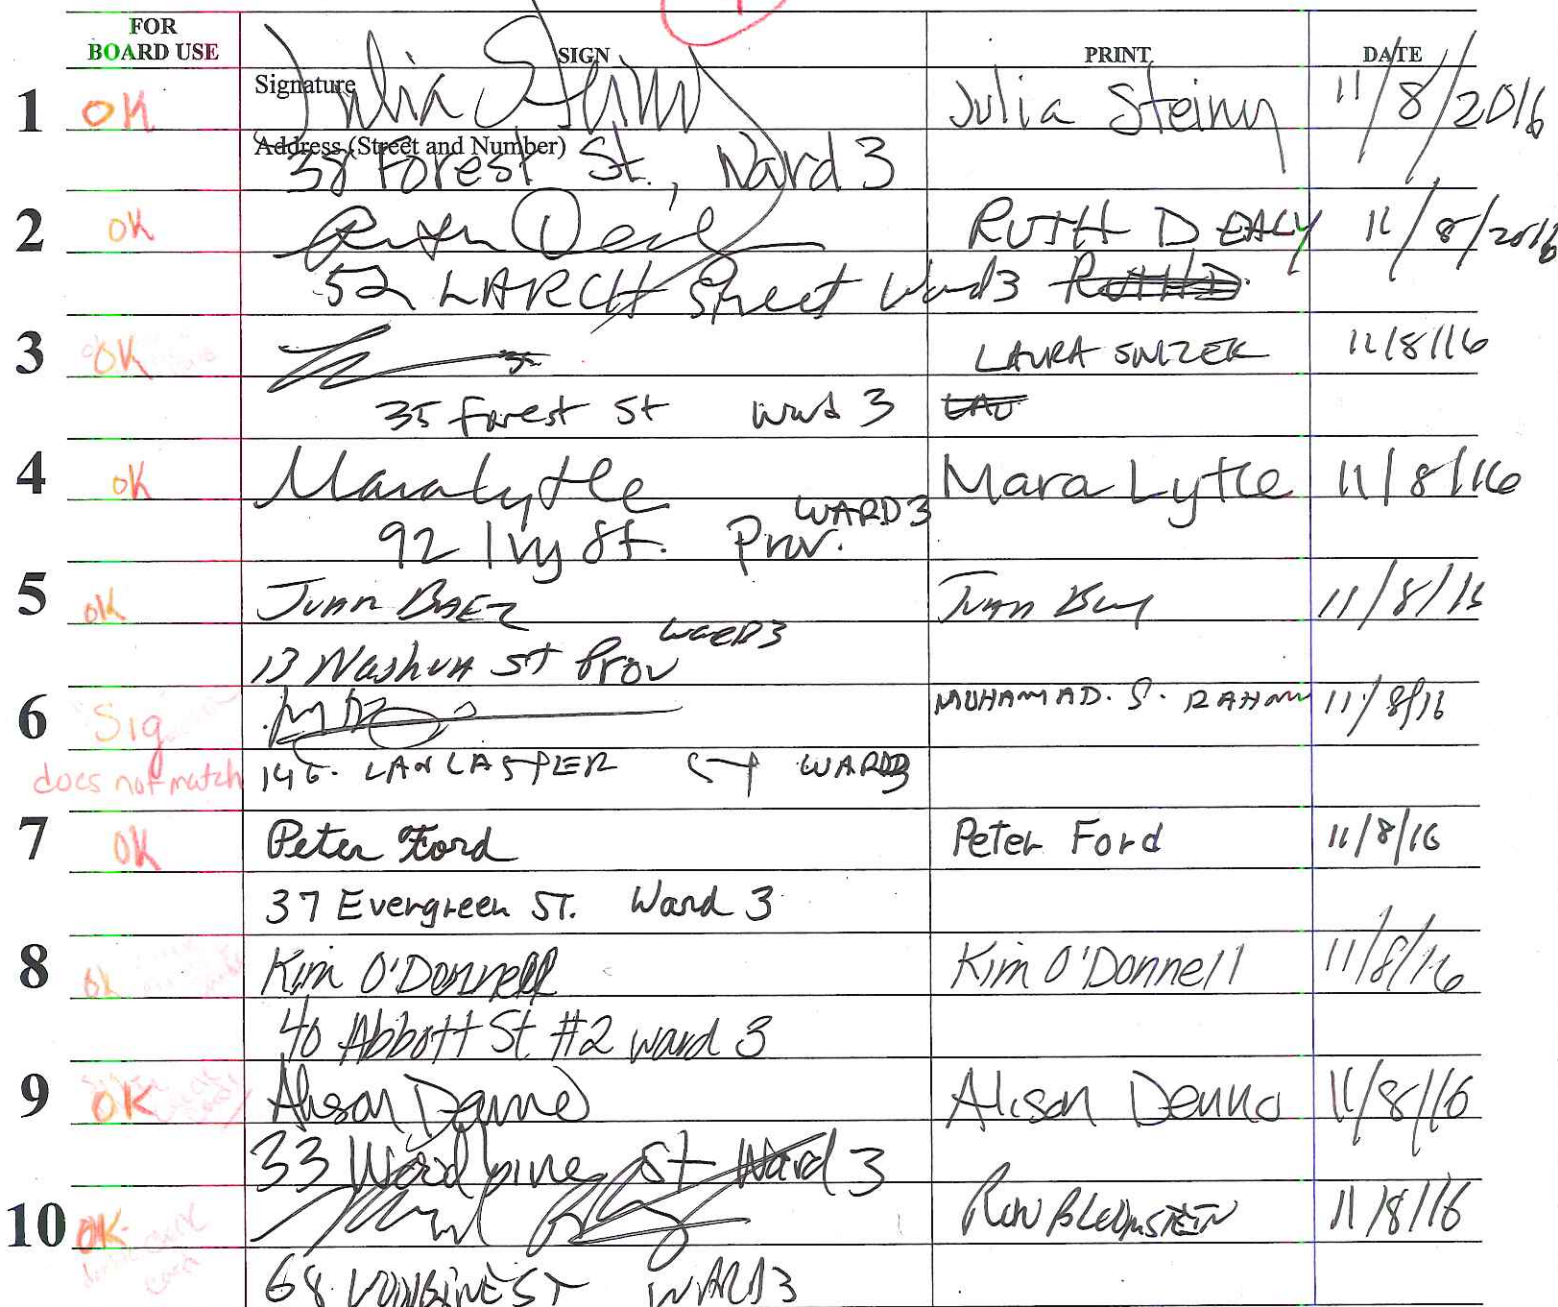 FOR BOARD USE SIGN PRINT DATE
Signature
1 OK Julia Steiny Julia Steiny 11/8/2016
Address (Street and Number)
38 Forest St., Ward 3
2 OK Ruth Dealy RUTH DEALY 11/8/2016
52 LARCH Street Ward 3
3 OK LAURA 11/8/16
35 Forest St Ward 3
4 OK Mara Lytle Mara Lytle 11/8/16
WARD 3
92 Ivy St. Prov.
5 OK Juan BAEZ Juan 11/8/16
13 Nashua St Prov
6 Sig MUHAMMAD. S. RAHMAN 11/8/16
does not match 146. WARD 3
7 OK Peter Ford Peter Ford 11/8/16
37 Evergreen ST. Ward 3
8 OK Kim O'Donnell Kim O'Donnell 11/8/16
40 Abbott St. #2 ward 3
9 OK Alison Alison 11/8/16
33 Woodbine St Ward 3
10 OK 11/8/16
68 ST WARD 3